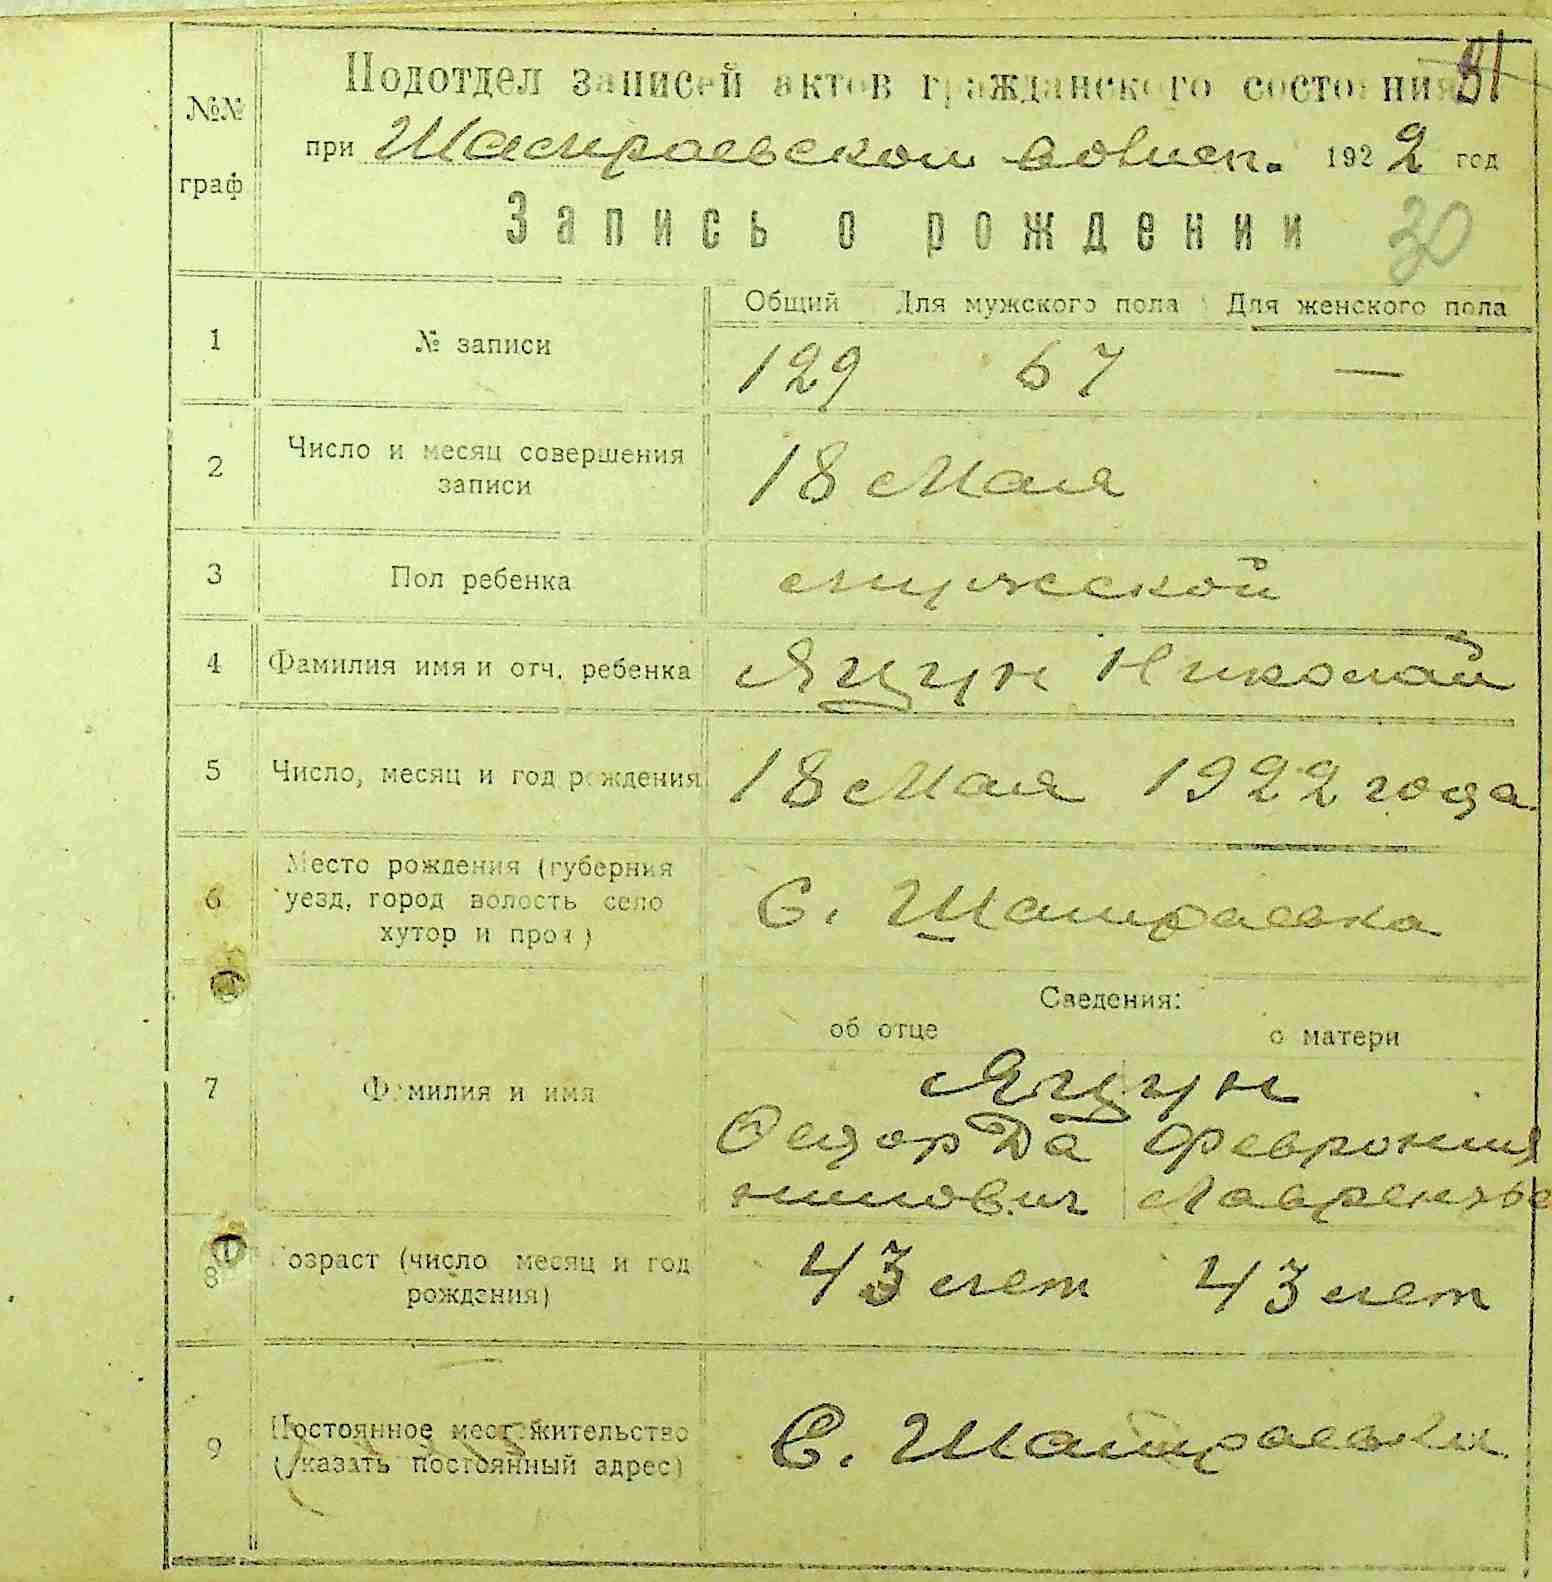 31
№№ граф
Подотдел записей актов гражданского состояния
при Шатраевском волисп. 1922 год
Запись о рождении 30
Общий Для мужского пола Для женского пола
1 № записи 129 67 —
2 Число и месяц совершения записи 18 Мая
3 Пол ребенка мужской
4 Фамилия имя и отч. ребенка Яцун Николай
5 Число, месяц и год рождения 18 Мая 1922 года
6 Место рождения (губерния уезд, город волость село хутор и проч) С. Шатраевка
Сведения:
об отце о матери
7 Фамилия и имя Яцун
Федор Да Феврония
нилович Лавренть
8 Возраст (число месяц и год рождения) 43 лет 43 лет
9 Постоянное местожительство (указать постоянный адрес) С. Шатраевки